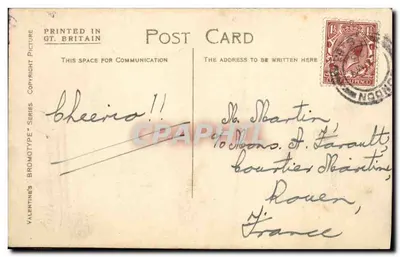 PRINTED IN
GT. BRITAIN
POST CARD
THIS SPACE FOR COMMUNICATION
THE ADDRESS TO BE WRITTEN HERE
VALENTINE'S "BROMOTYPE" SERIES COPYRIGHT PICTURE
Cheerio!!
M. Martin,
c/o Mons. A. Farault,
Courtier Maritime,
Rouen,
France
CPAPHIL
LONDON